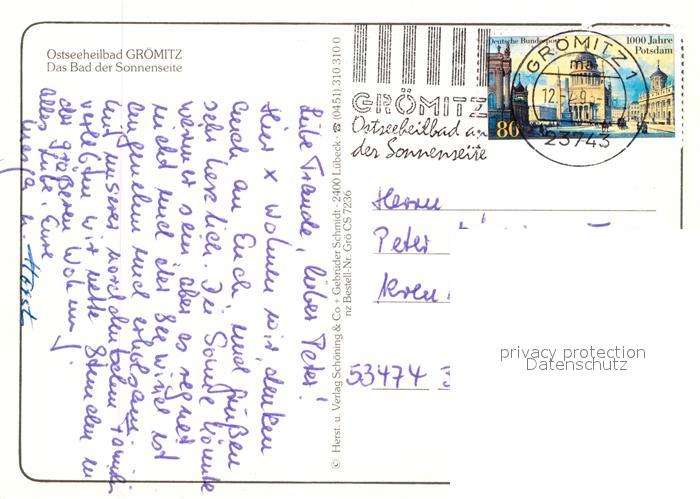 Ostseeheilbad GRÖMITZ
Das Bad der Sonnenseite
Liebe Traude, lieber Peter!
Hier x wohnen wir, denken
auch an Euch und grüßen
sehr herzlich. Die Sonne könnte
wärmer sein aber es regnet
nicht und der Seewind ist
angenehm und erholsam.
Mit unserer norddeutschen Familie
verlebten wir nette Stunden in
der größeren Wohnung!
Alles Gute! Eure
u. Horst
© Herst. u. Verlag Schöning & Co + Gebrüder Schmidt · 2400 Lübeck · ☎ (0451) 310 310 0
nz Bestell-Nr. Grö CS 7236
GRÖMITZ
Ostseeheilbad an
der Sonnenseite
Deutsche Bundespost
1000 Jahre
Potsdam
80
GRÖMITZ 1
23743
Herrn
Peter
53474
privacy protection
Datenschutz